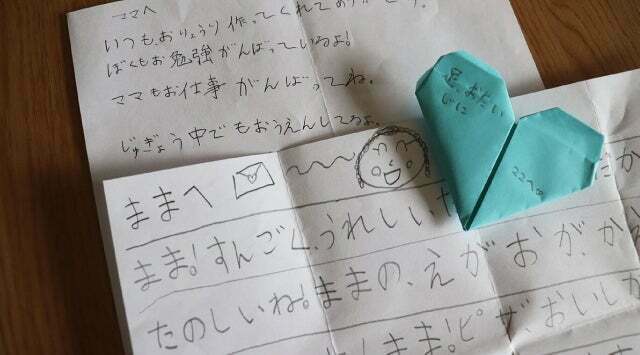 ママへ
いつも、おりょうり作ってくれてありがとう。
ぼくもお勉強がんばっているよ!
ママもお仕事がんばってね。
じゅぎょう中でもおうえんしてるよ。
ままへ
まま!すんごく、うれしい
たのしいね!ままの、えがおが、か
まま!ピザ、おいしか
足、おだい
じに
ママへ